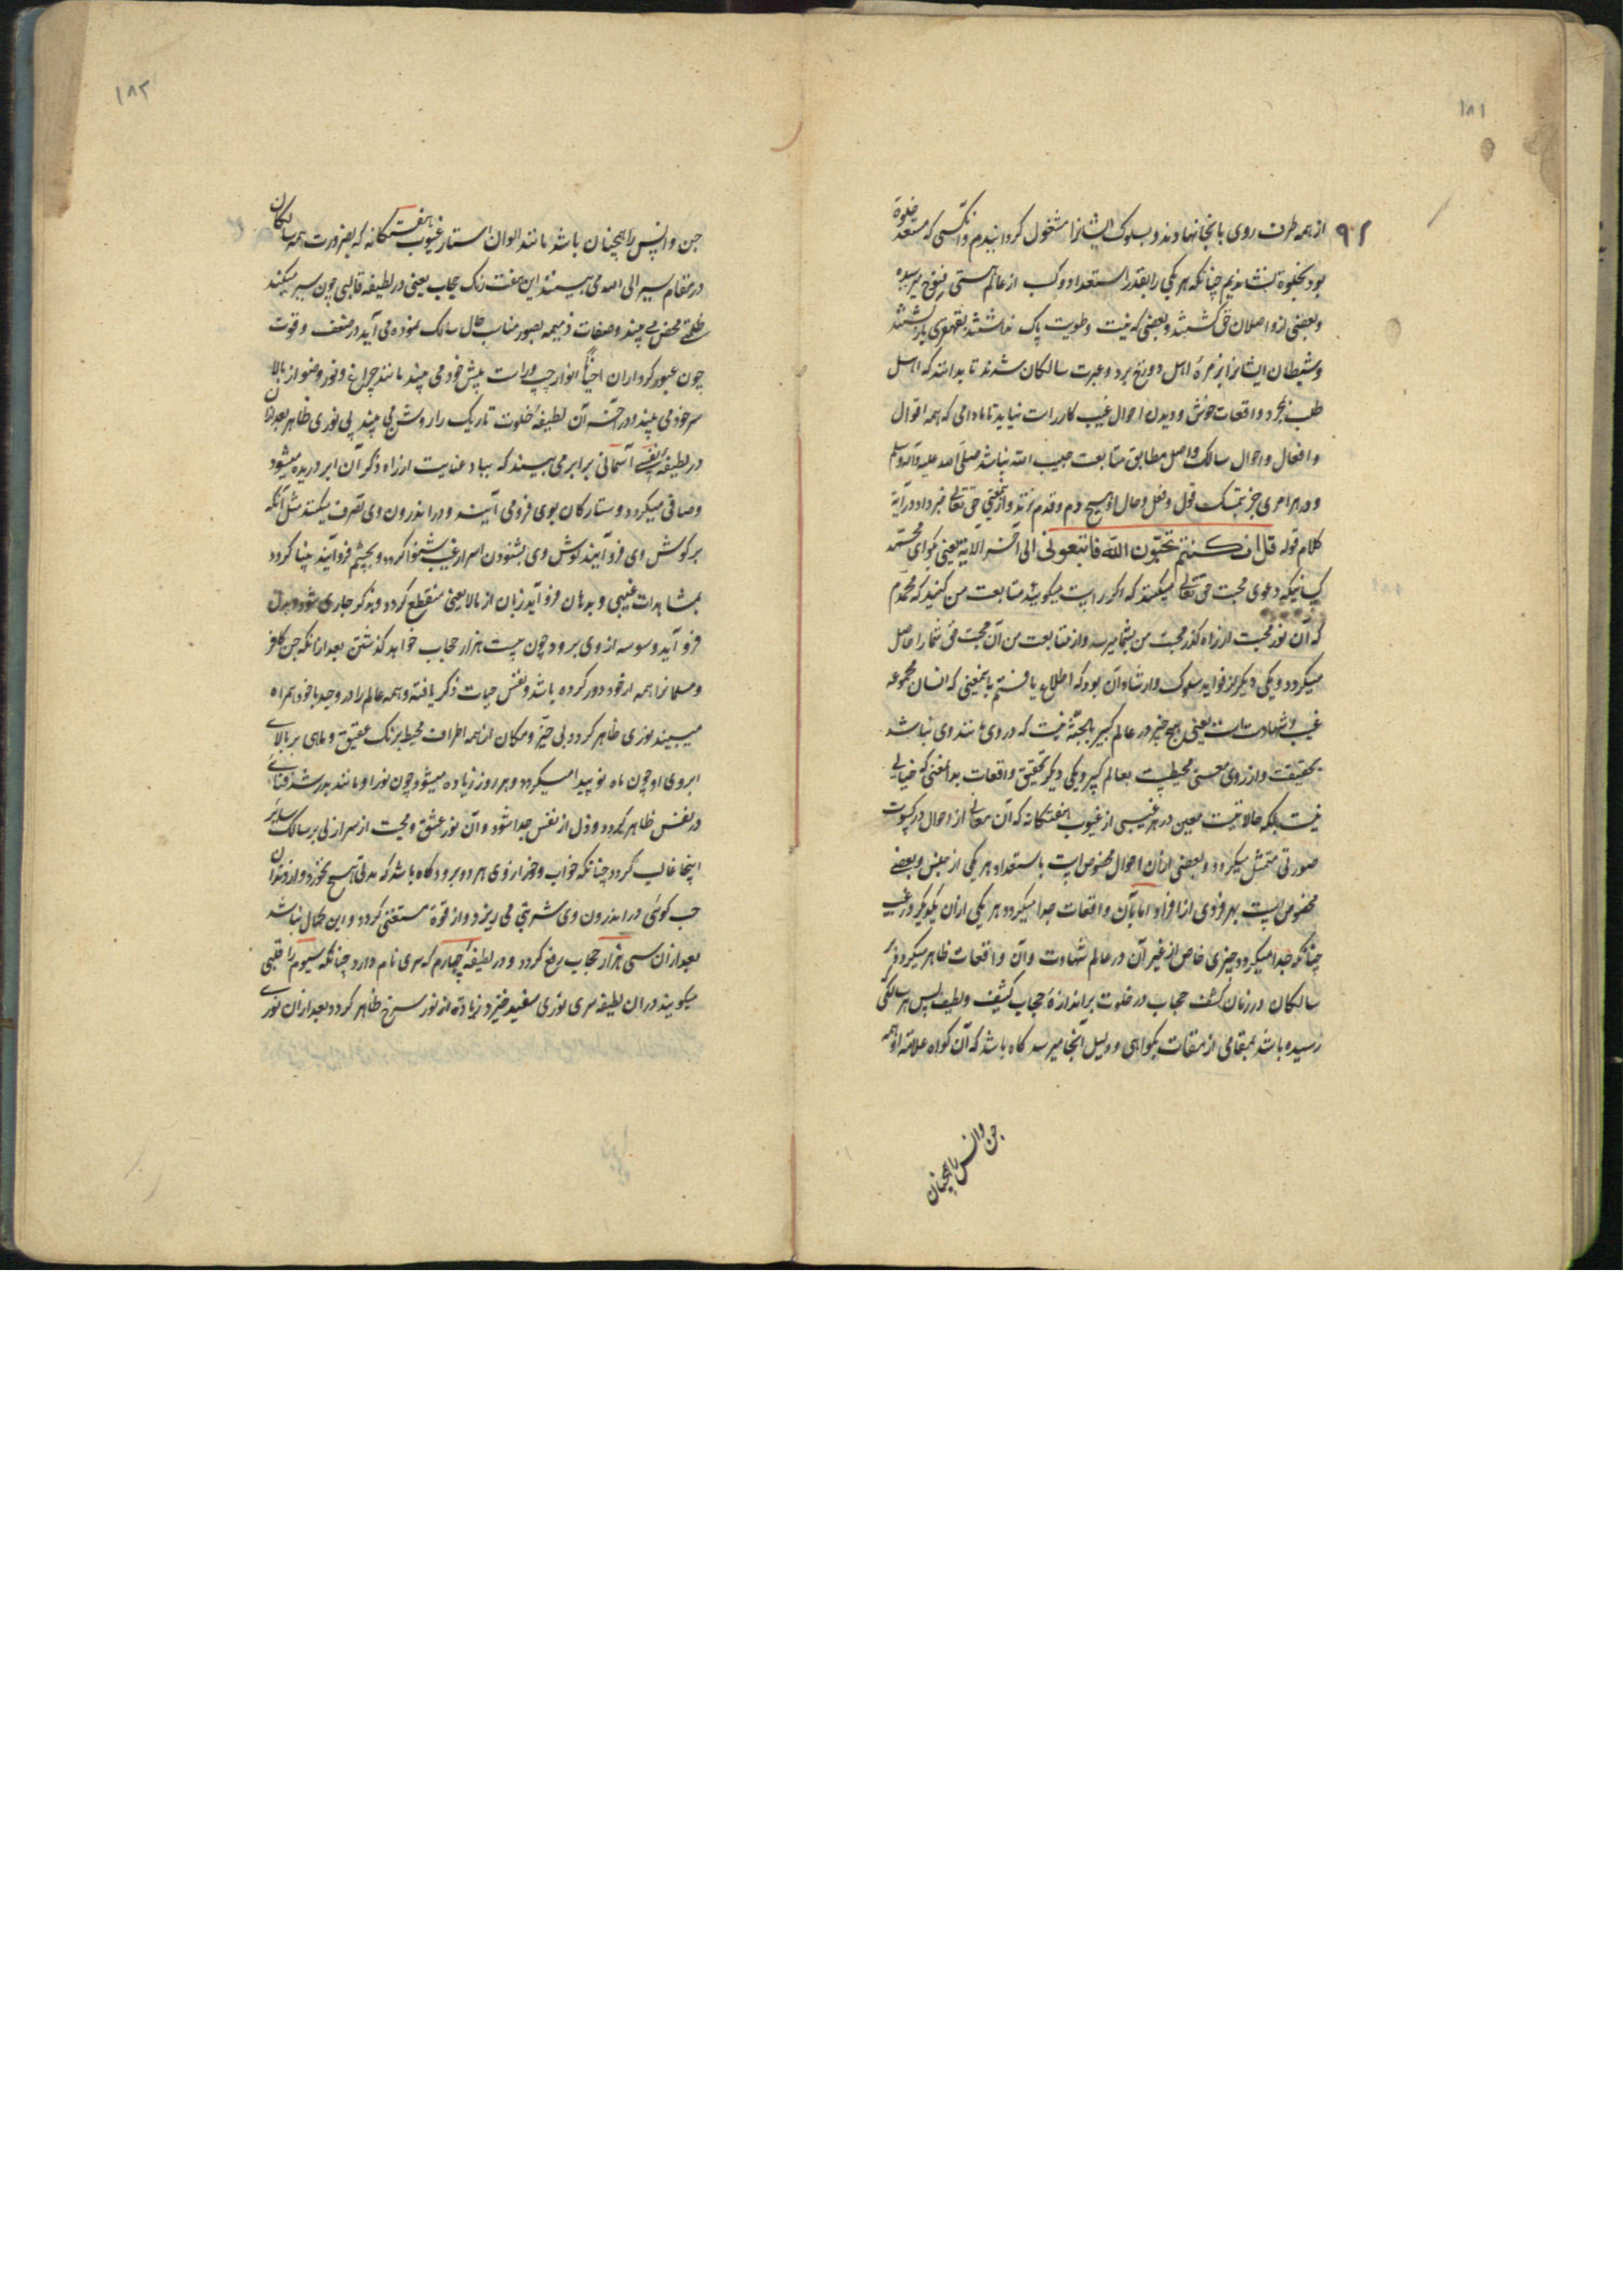 ۱۸۱
۹۲
از همه طرف روی بانجا نهادند و بسلوک ایشانرا مشغول کردانیدم و انکسی که مستعد خلوة
بود بخلوة بنشاندیم چنانکه هر یکی را بقدر استعداد و کسب از عالم هستی فتوح میرسیده
و بعضی از واصلان حق کشتند و بعضی که نیت و طویت پاک نداشتند بقهقری باز کشتند
و شیطان ایشانرا بزمرهٔ اهل دوزخ برد و عبرت سالکان شدند تا بدانند که اهل
طلب بمجرد واقعات خوش و دیدن احوال غیب کار راست نیاید تا مادامی که همه اقوال
و افعال و احوال سالک واصل مطابق متابعت حبیب الله نباشد صلی الله علیه و آله وسلم
و در هر امری جز بتمسک قول و فعل و حال او هیچ دم و قدم نزند و ازینمعنی حق تعالی خبر داد در آیة
کلام قوله قل ان کنتم تحبون الله فاتبعونی الی آخر الآیة یعنی بکوای محمد
کسانیکه دعوی محبت حق تعالی میکنند که اکر راست میکویند متابعت من کنید که محمدم
که آن نور محبت از راه کذر محبت من بشما میرسد و از متابعت من آن محبت حق شما را حاصل
میکردد و یکی دیکر از فواید سلوک و ارشاد آن بود که اطلاع یافتم باینمعنی که انسان مجموعه
غیب و شهادتست یعنی هیچ چیز در عالم کبیر بالجثه نیست که در وی مانند وی نباشد
بحقیقت و از روی معنی محیطست بعالم کبیر و یکی دیکر تحقیق واقعات بدانمعنی که خیالی
نیست بلکه حالاتیست معین در هر غیبی از غیوب هفتکانه که آن معانی از احوال در کسوت
صورتی متمثل میکردد و بعضی ازان احوال مخصوص است باستعداد هر یکی از جنس و بعضی
مخصوص است بهر فردی از افراد اما بآن واقعات جدا میکردد هر یکی ازان یکدیکر در غیب
چنانکه جدا میکردد چیزی خاص از غیر آن در عالم شهادت و آن واقعات ظاهر میکردد بر
سالکان در زمان کشف حجاب در خلوت بر اندازهٔ حجاب کثیف و لطیف پس هر سالکی
رسیده باشد بمقامی از مقامات بکواهی و دلیل آنجا میرسد کاه باشد که آن کواه علامة او همه
جن وانس را همچنان
۱۸۲
جن وانس را همچنان باشد مانند الوان استار غیوب هفتکانه که بضرورت همه سالکان
در مقام سیر الی الله می بینند این هفت رنک حجاب یعنی در لطیفه قالبی چون سیر میکند
ظلمتی محض می بیند و صفات ذمیمه بصور مناسب حال سالک نموده می آید در ضعف و قوت
چون عبور کرد ازان احیاناً انوار چپ و راست پیش خود می بیند مانند چراغ و نور و ضو از بالا
سر خود می بیند و در آخر آن لطیفه خلوت تاریک را روشن می بیند بی نوری ظاهر بعد ازان
در لطیفه نفسی آسمانی پر ابر می بیند که بباد عنایت از راه ذکر آن ابر دریده میشود
و صافی میکردد و ستارکان بوی فرو می آیند و در اندرون وی تصرف میکنند مثل آنکه
بر کوش وی فرو آیند کوش وی بشنودن اسرار غیب شنوا کردد و بچشم فرو آیند بینا کردد
بمشاهدات غیبی و بدهان فرو آید زبان از مالایعنی منقطع کردد و بذکر جاری شود و بدل
فرو آید وسوسه از وی برود چون بیست هزار حجاب خواهد کذشتن بعد ازانکه جن کافر
و مسلمانرا همه از خود دور کرده باشد و نفس حیات ذکر یافته و همه عالم را در وجد با خود همراه
میبیند نوری ظاهر کردد بی حیز و مکان از همه اطراف محیط برنک عقیق و ماهی بر بالای
ابروی او چون ماه نو پیدا میکردد و هر روز زیاده میشود چون نور او مانند بدر شد فنائی
در نفس ظاهر کردد و دل از نفس جدا شود و آن نور عشق و محبت از سر ازلی بر سالک سایر
اینجا غالب کردد چنانکه خواب و خور از وی هر دو برود کاه باشد که مدتی هیچ نخورد و از نهان
جب کوئی در اندرون وی شربتی می ریزد و از قوة مستغنی کردد و این محال نباشد
بعد ازان سی هزار حجاب رفع کردد و در لطیفه چهارم که سری نام دارد چنانکه سیوم را قلبی
میکویند دران لطیفه سری نوری سفید خیزد زیادة از نور سرخ ظاهر کردد بعد ازان نوری